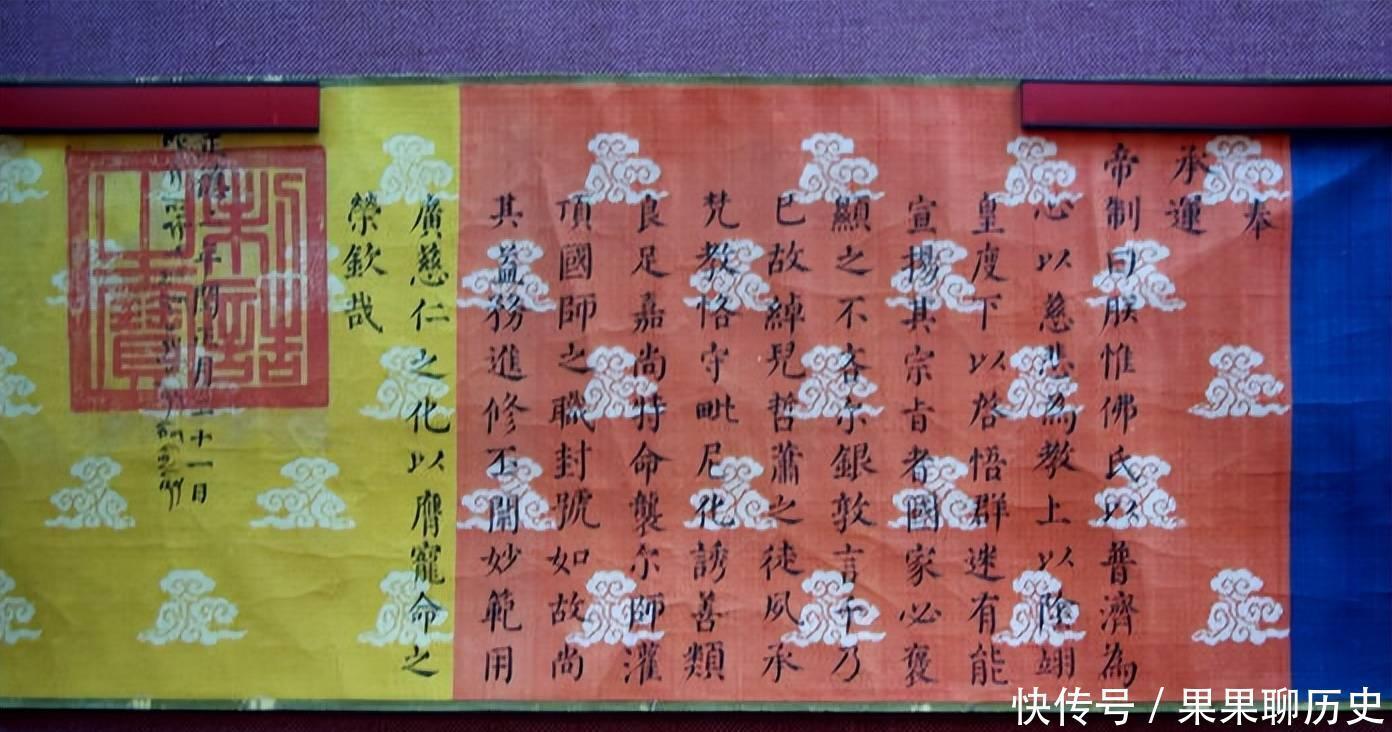 奉
承運
帝制曰朕惟佛氏以普濟為
心以慈悲為教上以陰翊
皇度下以啓悟群迷有能
宣揚其宗旨者國家必褒
顯之不吝尔銀敦言千乃
已故綽兒哲蕭之徒夙承
梵教恪守毗尼化誘善類
良足嘉尚特命襲尔師灌
頂國師之職封號如故尚
其益務進修丕闡妙範用
廣慈仁之化以膺寵命之
榮欽哉
年閏五月十一日
快传号 / 果果聊历史